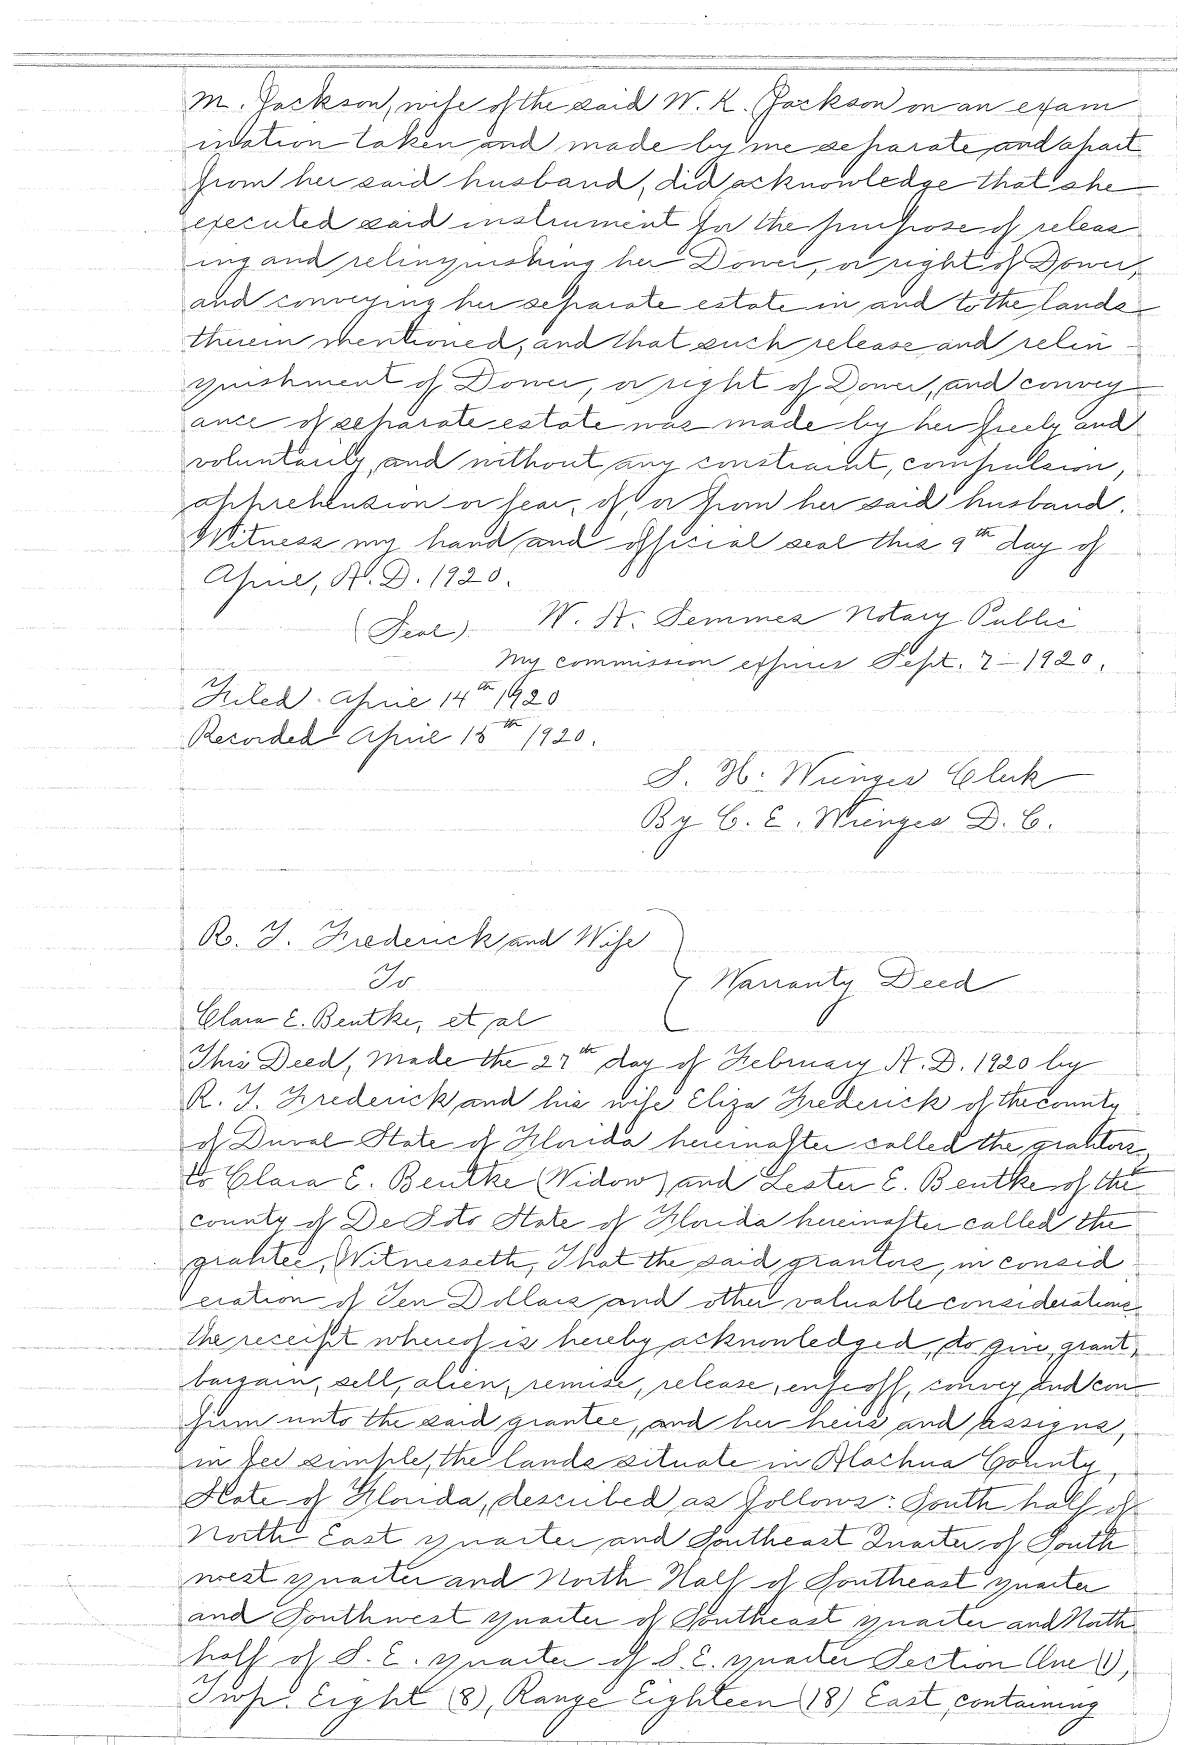 M. Jackson, wife of the said W. K. Jackson on an exam
ination taken and made by me separate and apart
from her said husband, did acknowledge that she
executed said instrument for the purpose of releas
ing and relinquishing her Dower, or right of Dower,
and conveying her separate estate in and to the lands
therein mentioned, and that such release and relin
quishment of Dower, or right of Dower, and convey
ance of separate estate was made by her freely and
voluntarily, and without any constraint, compulsion,
apprehension or fear, of, or from her said husband.
Witness my hand and official seal this 9th day of
April, A. D. 1920.
(Seal) W. A. Semmes Notary Public
My commission expires Sept. 7 - 1920.
Filed April 14th 1920
Recorded April 15th 1920.
S. H. Wienges Clerk
By C. E. Wienges D. C.
R. T. Frederick and Wife
To
Warranty Deed
Clara E. Bentke, et al
This Deed, Made the 27th day of February A. D. 1920 by
R. T. Frederick and his wife Eliza Frederick of the county
of Duval State of Florida hereinafter called the grantors,
to Clara E. Bentke (Widow) and Lester E. Bentke of the
county of De Soto State of Florida hereinafter called the
grantee, Witnesseth, That the said grantors, in consid
eration of Ten Dollars and other valuable considerations
the receipt whereof is hereby acknowledged, do give, grant,
bargain, sell, alien, remise, release, enfeoff, convey and con
firm unto the said grantee, and her heirs and assigns,
in fee simple, the lands situate in Alachua County,
State of Florida, described as follows: South half of
North East quarter and Southeast Quarter of South
west quarter and North Half of Southeast quarter
and Southwest quarter of Southeast quarter and North
half of S. E. quarter of S. E. quarter Section One (1),
Twp. Eight (8), Range Eighteen (18) East, containing